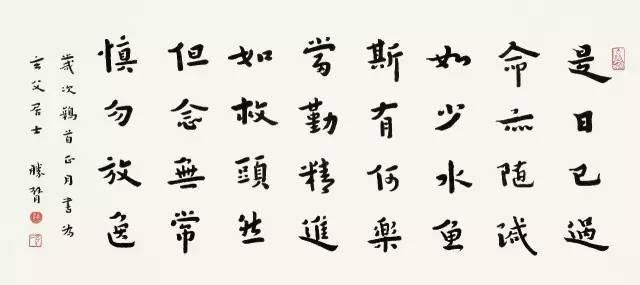 是日已過
命亦随減
如少水魚
斯有何樂
當勤精進
如救頭然
但念無常
慎勿放逸
歲次鶉首正月書於
玄父居士 勝